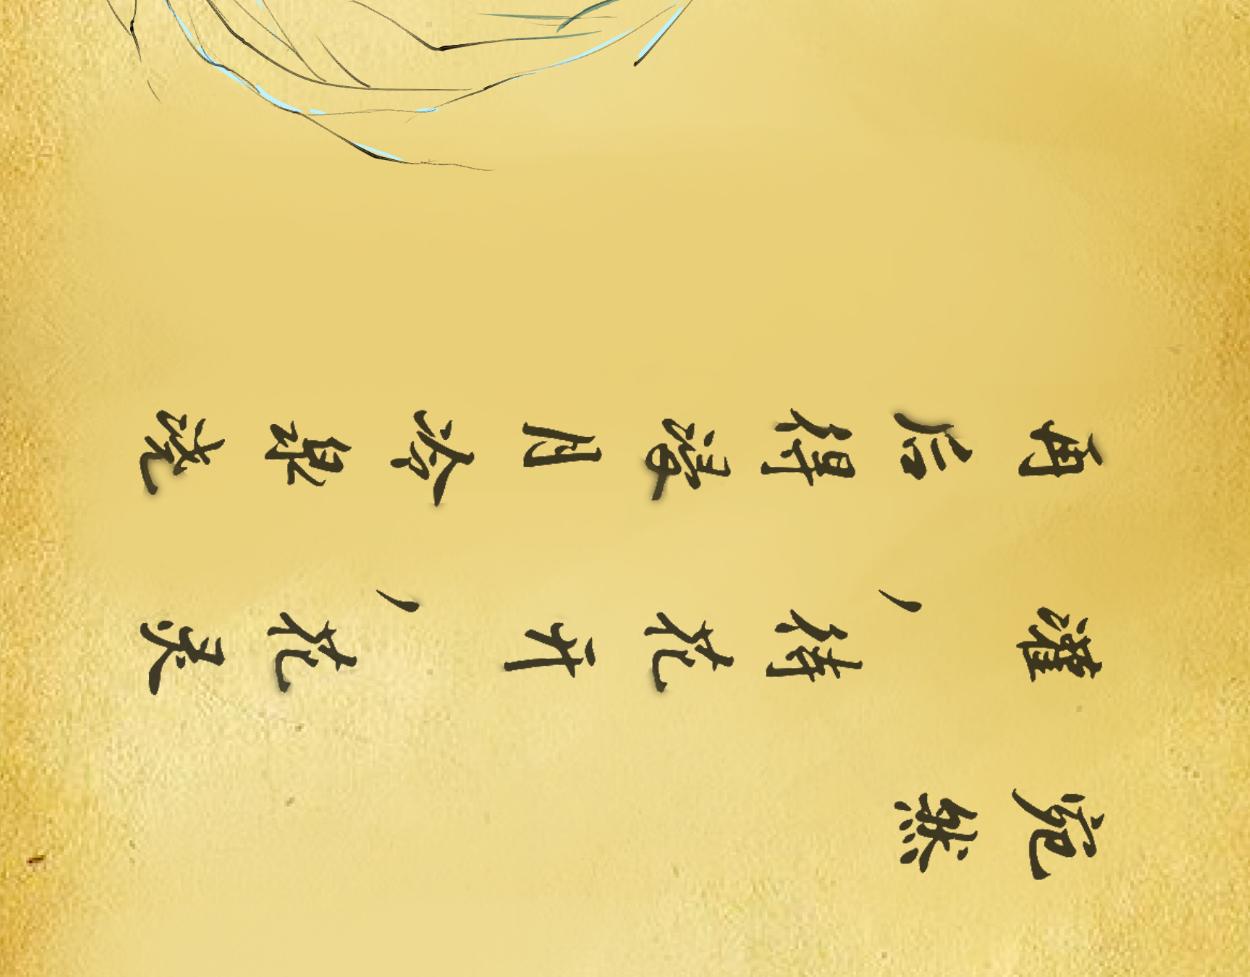 雨后得漫月冷泉浇
灌，待花开，花灵
宛然